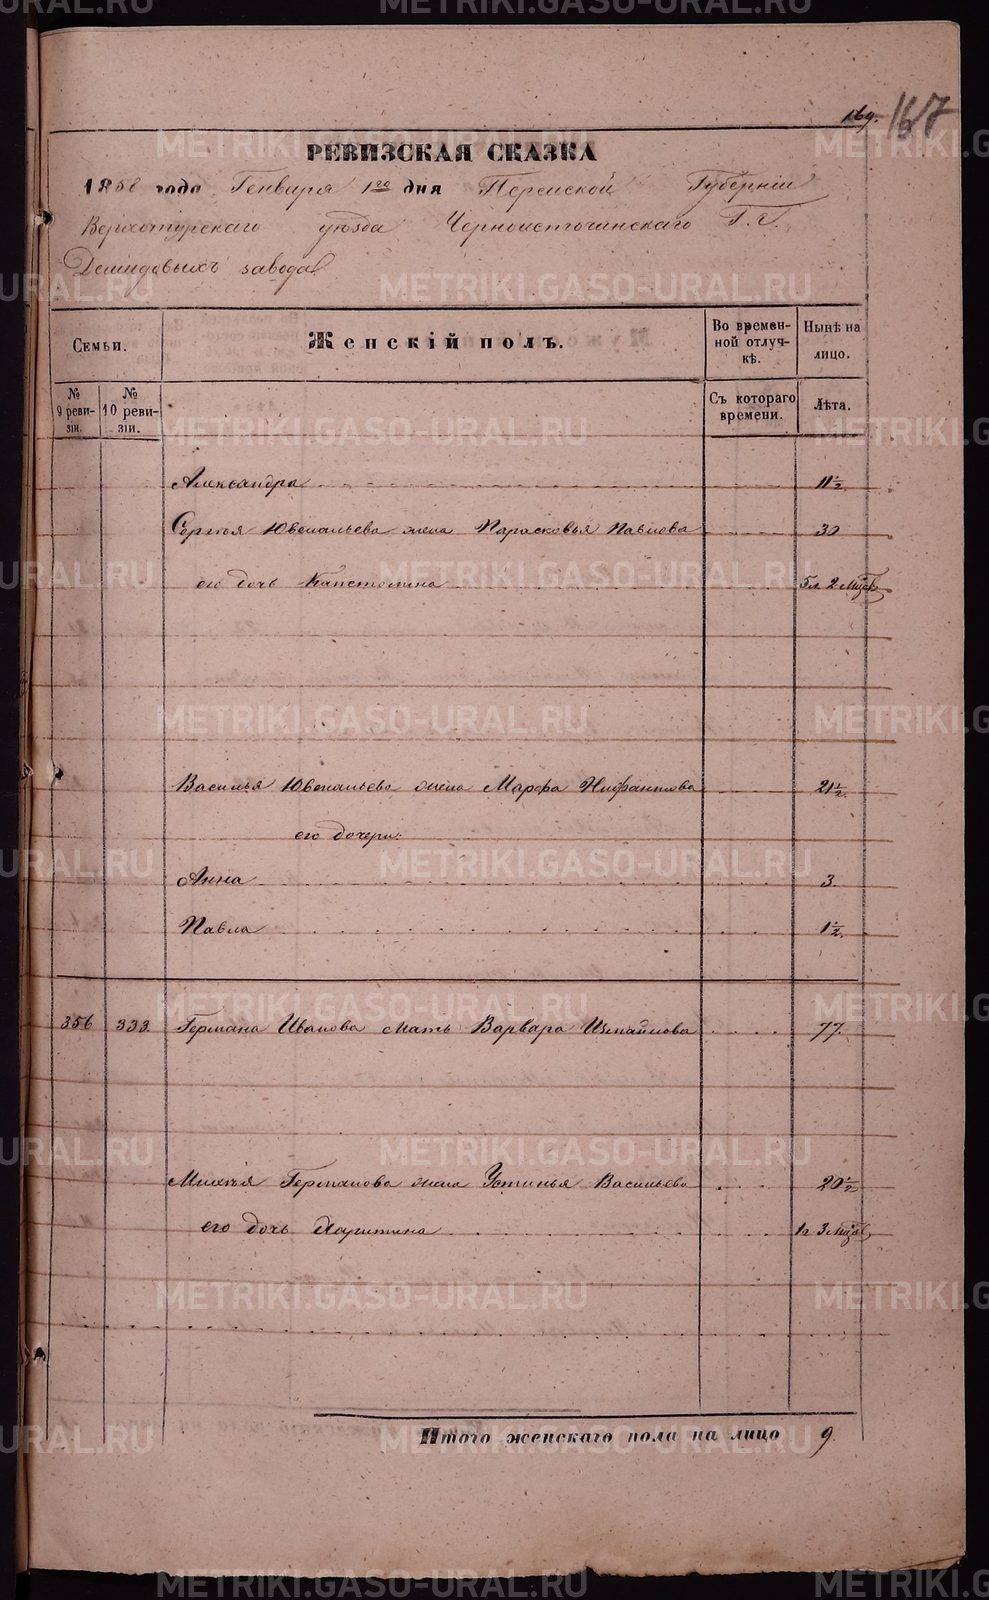 169. 167
РЕВИЗСКАЯ СКАЗКА
1858 года Генваря 1го дня Пермской Губерніи
Верхотурскаго уѣзда Черноисточинскаго Г.г.
Демидовыхъ завода
Семьи. Женскій полъ. Во времен-ной отлуч-кѣ. Нынѣ на лицо.
№ 9 реви-зіи. № 10 реви-зіи. Съ котораго времени. Лѣта.
Александра 11½
Сергѣя Ювенальева жена Парасковья Павлова 30
его дочь Капетолина 5л. 2 Мѣсяц
Василья Ювенальева жена Марфа Нифантова 21½.
его дочери:
Анна 3.
Павла 1½.
356 333. Германа Иванова мать Варвара Измайлова 77.
Германова жена Устинья Васильева 20½
его дочь Харитина 1г 3 Мѣсяц
Итого женскаго пола на лицо 9
METRIKI.GASO-URAL.RU